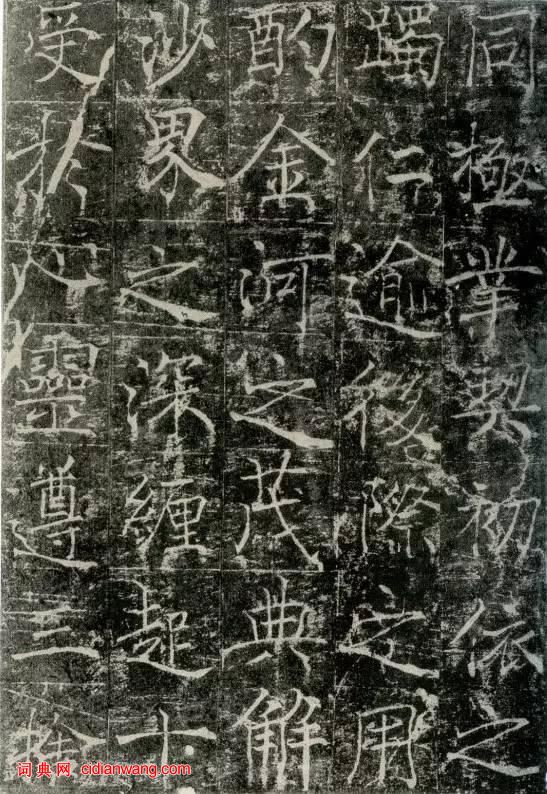 同極契初依之
躅仁逾後際之用
酌金河之茂典解
沙界之深纏超十
受於心靈遵三
词典网 cidianwang.com